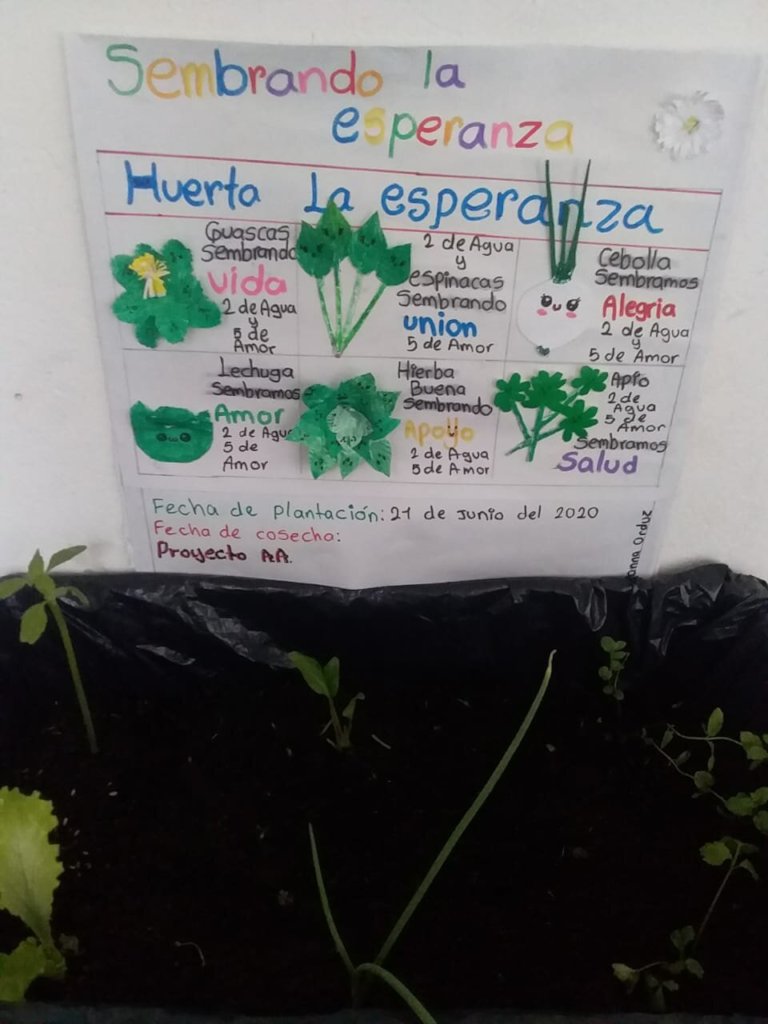 Sembrando la
esperanza
Huerta La esperanza
Guascas
Sembrando
Vida
2 de Agua
y
5 de
Amor
2 de Agua
y
espinacas
Sembrando
union
5 de Amor
Cebolla
Sembramos
Alegria
2 de Agua
y
5 de Amor
Lechuga
Sembramos
Amor
2 de Agua
5 de
Amor
Hierba
Buena
Sembrando
Apoyo
2 de Agua
5 de Amor
Apio
2 de
Agua
5 de
Amor
Sembramos
Salud
Fecha de plantación: 21 de Junio del 2020
Fecha de cosecha:
Proyecto A.A.
Orduz